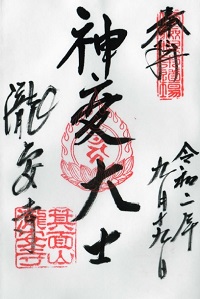 奉拝
令和二年
九月十九日
神変大士
瀧安寺
箕面山
瀧安寺